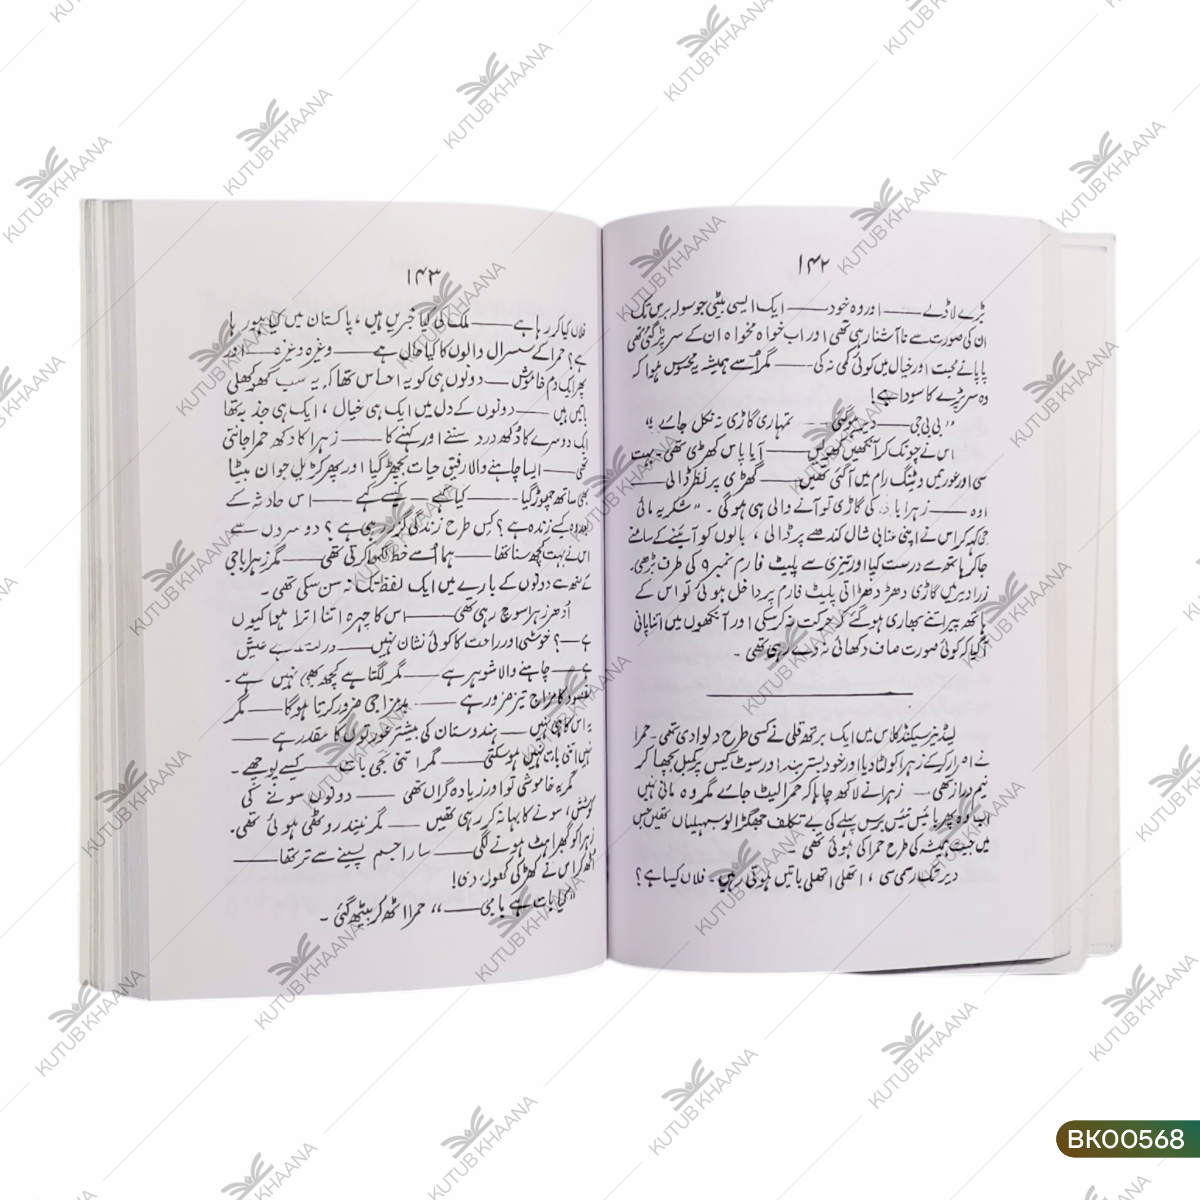 ۱۴۲
بڑے لاڈلے —— اور وہ خود —— ایک ایسی بیٹی جو سولہ برس تک
ان کی صورت سے ناآشنا رہی تھی اور اب خواہ مخواہ ان کے سر پڑ گئی تھی
پاپا نے محبت اور خیال میں کوئی کمی نہ کی —— مگر اُسے ہمیشہ یہ محسوس ہوا کہ
وہ سر پڑے کا سودا ہے!
”بی بی جی —— دیر ہو گئی —— تمہاری گاڑی نہ نکل جائے“
اس نے چونک کر آنکھیں کھولیں —— آیا پاس کھڑی تھی۔ بہت
سی اور عورتیں ویٹنگ روم میں آ گئی تھیں —— گھڑی پر نظر ڈالی ——
اوہ —— زہرا باجی کی گاڑی تو آنے والی ہی ہو گی۔ ”شکریہ مائی
جی کہہ کر اس نے اپنی عنابی شال کندھے پر ڈالی، بالوں کو آئینے کے سامنے
جا کر ہاتھ سے درست کیا اور تیزی سے پلیٹ فارم نمبر ۹ کی طرف بڑھی۔
ذرا دیر میں گاڑی دھڑ دھڑاتی پلیٹ فارم پر داخل ہوئی تو اس کے
ہاتھ پیر اتنے بھاری ہو گئے کہ حرکت نہ کر سکی اور آنکھوں میں اتنا پانی
آ گیا کہ کوئی صورت صاف دکھائی نہ دے رہی تھی۔
لیڈیز سیکنڈ کلاس میں ایک برتھ قلی نے کسی طرح دلوا دی تھی۔ حمرا
نے اصرار کر کے زہرا کو لٹا دیا اور خود بستر بند اور سوٹ کیس پر کمبل بچھا کر
نیم دراز تھی —— زہرا نے لاکھ چاہا کہ حمرا لیٹ جائے مگر وہ مانی نہیں
اب وہ پھر بائیس تئیس برس پہلے کی بے تکلف جھگڑالو سہیلیاں تھیں جس
میں جیت ہمیشہ کی طرح حمرا کی ہوئی تھی۔
دیر تک رسمی سی، اتھلی اتھلی باتیں ہوتی رہیں۔ فلاں کیسا ہے؟
۱۴۳
فلاں کیا کر رہا ہے —— ملک کی کیا خبریں ہیں، پاکستان میں کیا ہو رہا
ہے؟ حمرا کے سسرال والوں کا کیا حال ہے —— وغیرہ وغیرہ —— اور
پھر ایک دم خاموش —— دونوں ہی کو یہ احساس تھا کہ یہ سب کھوکھلی
باتیں ہیں —— دونوں کے دل میں ایک ہی خیال، ایک ہی جذبہ تھا
ایک دوسرے کا دکھ درد سننے اور کہنے کا —— زہرا کا دکھ حمرا جانتی
تھی —— ایسا چاہنے والا رفیقِ حیات بچھڑ گیا اور پھر کڑیل جوان بیٹا
بھی ساتھ چھوڑ گیا —— کیا کہے —— کیسے کہے —— اس حادثہ کے
بعد وہ کیسے زندہ ہے؟ کس طرح زندگی گزر رہی ہے؟ دوسروں سے
اس نے بہت کچھ سنا تھا —— ہما اُسے خط لکھا کرتی تھی —— مگر زہرا باجی
کے منہ سے دونوں کے بارے میں ایک لفظ تک نہ سن سکی تھی۔
اُدھر زہرا سوچ رہی تھی —— اس کا چہرہ اتنا اترا ہوا کیوں
ہے —؟ خوشی اور راحت کا کوئی نشان نہیں —— دولت ہے عیش
ہے —— چاہنے والا شوہر ہے —— مگر لگتا ہے کچھ بھی نہیں ہے۔
مقصود کا مزاج تیز ضرور ہے —— بدمزاجی ضرور کرتا ہو گا —— مگر
یہ اس کا ہی نہیں —— ہندوستان کی بیشتر عورتوں کا مقدر ہے ——
نہیں اتنی بات نہیں ہو سکتی —— مگر اتنی نجی بات —— کیسے پوچھے۔
مگر یہ خاموشی تو اور زیادہ گراں تھی —— دونوں سونے کی
کوشش، سونے کا بہانہ کر رہی تھیں —— مگر نیند روٹھی ہوئی تھی۔
زہرا کو گھبراہٹ ہونے لگی —— سارا جسم پسینے سے تر تھا ——
اٹھ کر اس نے کھڑکی کھول دی!
”کیا بات ہے باجی ——“ حمرا اٹھ کر بیٹھ گئی۔
KUTUB KHAANA
BK00568